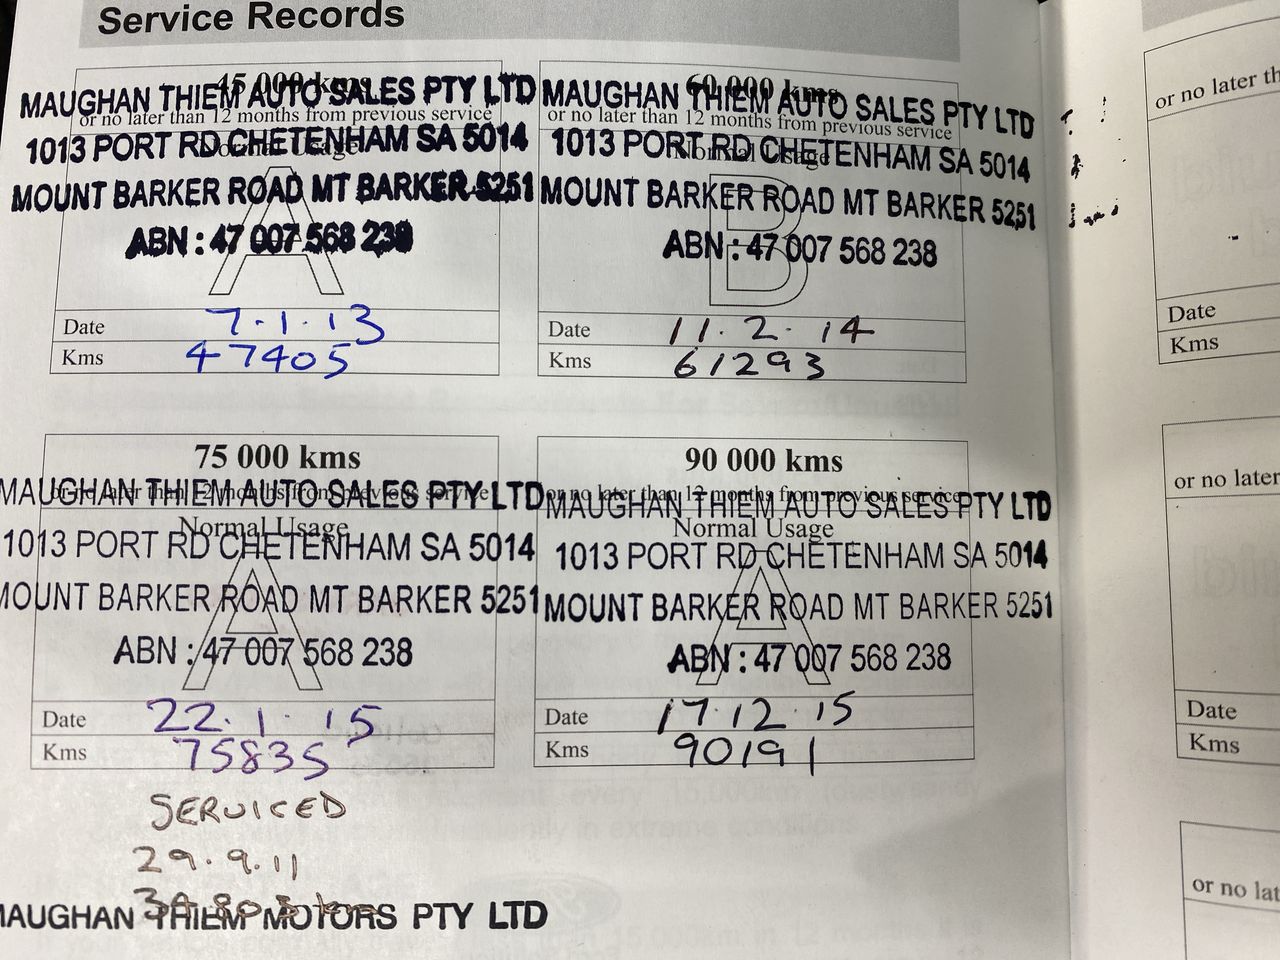 Service Records
45 000 kms
MAUGHAN THIEM AUTO SALES PTY LTD
or no later than 12 months from previous service
1013 PORT RD CHETENHAM SA 5014
Normal Usage
MOUNT BARKER ROAD MT BARKER 5251
A
ABN : 47 007 568 238
Date 7.1.13
Kms 47405
60 000 kms
MAUGHAN THIEM AUTO SALES PTY LTD
or no later than 12 months from previous service
1013 PORT RD CHETENHAM SA 5014
Normal Usage
MOUNT BARKER ROAD MT BARKER 5251
B
ABN : 47 007 568 238
Date 11.2.14
Kms 61293
75 000 kms
MAUGHAN THIEM AUTO SALES PTY LTD
or no later than 12 months from previous service
Normal Usage
1013 PORT RD CHETENHAM SA 5014
MOUNT BARKER ROAD MT BARKER 5251
A
ABN : 47 007 568 238
Date 22.1.15
Kms 75835
90 000 kms
or no later than 12 months from previous service
MAUGHAN THIEM AUTO SALES PTY LTD
Normal Usage
1013 PORT RD CHETENHAM SA 5014
MOUNT BARKER ROAD MT BARKER 5251
A
ABN : 47 007 568 238
Date 17.12.15
Kms 90191
SERVICED
29.9.11
MAUGHAN THIEM MOTORS PTY LTD
or no later th
Date
Kms
or no later
Date
Kms
or no lat